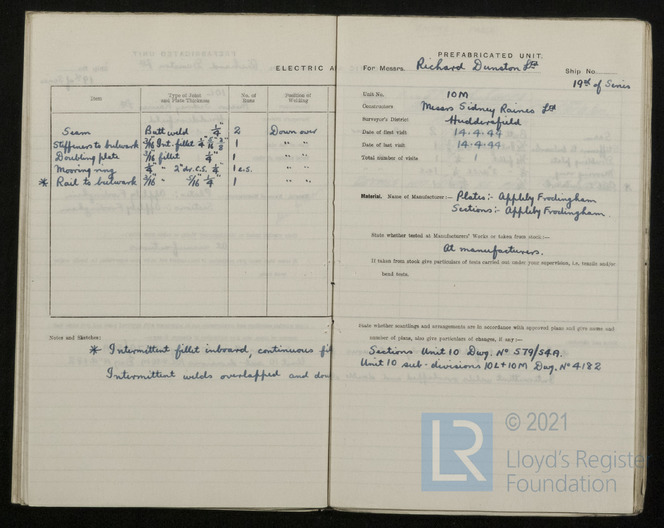 ELECTRIC A
Item
Type of Joint and Plate Thickness
No. of Runs
Position of Welding
Seam Butt weld 1/4" 2 Down over
Stiffeners to bulwark 3/16 Int. fillet 1 " "
Doubling plate 3/16 fillet 1/4" 1 " "
Mooring ring 1/4" " 2" dr. C.S. 1/4" 1 e.s. " "
* Rail to bulwark 3/16 " 5/16 1/4" 1 " "
Notes and Sketches:
* Intermittent fillet inboard, continuous fil
Intermittent welds overlapped and dou
PREFABRICATED UNIT.
For Messrs. Richard Dunston Ltd
Ship No.
19th of Series
Unit No. 10M
Constructors Messrs Sidney Raines Ltd
Surveyor's District Huddersfield
Date of first visit 14.4.44
Date of last visit 14.4.44
Total number of visits 1
Material. Name of Manufacturer:— Plates:- Appleby Frodingham
Sections:- Appleby Frodingham.
State whether tested at Manufacturers' Works or taken from stock:—
At manufacturers.
If taken from stock give particulars of tests carried out under your supervision, i.e. tensile and/or
bend tests.
State whether scantlings and arrangements are in accordance with approved plans and give name and
number of plans, also give particulars of changes, if any:—
Sections Unit 10 Dwg. No 579/54A.
Unit 10 sub-divisions 10L+10M Dwg. No 4182
© 2021
LR
Lloyd's Register
Foundation